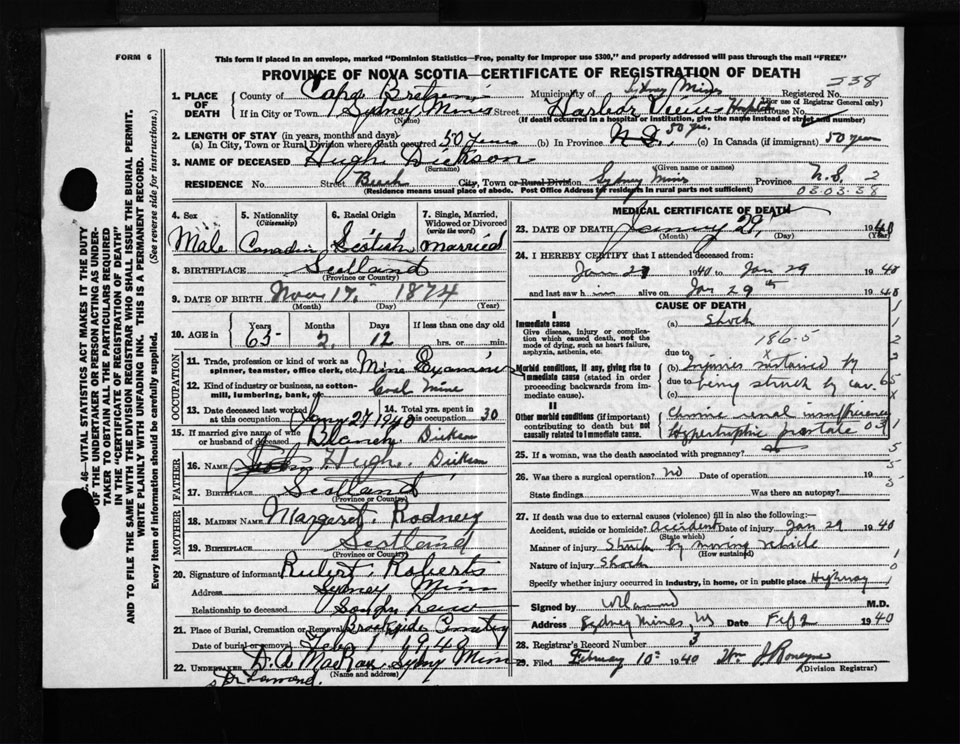 FORM 6
This form if placed in an envelope, marked "Dominion Statistics—Free, penalty for improper use $300," and properly addressed will pass through the mail "FREE"
PROVINCE OF NOVA SCOTIA—CERTIFICATE OF REGISTRATION OF DEATH
338
1. PLACE OF DEATH
County of Cape Breton Municipality of Sydney Mines Registered No.
(For use of Registrar General only)
If in City or Town Sydney Mines Street Harbor View Hospital House No.
(Name) (If death occurred in a hospital or institution, give the name instead of street and number)
2. LENGTH OF STAY (in years, months and days)
(a) In City, Town or Rural Division where death occurred 50 Years (b) In Province N.S. 50 yrs. (c) In Canada (if immigrant) 50 years
3. NAME OF DECEASED Hugh Dickson
(Surname) (Given name or names)
RESIDENCE No. Street Beech City, Town or Rural Division Sydney Mines Province N.S. 2
(Residence means usual place of abode. Post Office Address for residents in rural parts not sufficient) 03.03.38
4. Sex
Male
5. Nationality
(Citizenship)
Canadian
6. Racial Origin
Scotish
7. Single, Married, Widowed or Divorced
(write the word)
Married
8. BIRTHPLACE Scotland
(Province or Country)
9. DATE OF BIRTH Nov 17 1874
(Month) (Day) (Year)
10. AGE in
Years 63
Months 2
Days 12
If less than one day old
hrs. or min.
OCCUPATION
11. Trade, profession or kind of work as spinner, teamster, office clerk, etc. Mine Examiner
12. Kind of industry or business, as cotton-mill, lumbering, bank, etc. Coal Mine
13. Date deceased last worked at this occupation 27 1940
14. Total yrs. spent in this occupation 30
15. If married give name of wife or husband of deceased Blanch Dickson
FATHER
16. Name Hugh Dickson
17. Birthplace Scotland
(Province or Country)
MOTHER
18. Maiden Name Margaret Rodney
19. Birthplace Scotland
(Province or Country)
20. Signature of informant Robert Roberts
Address Sydney Mines
Relationship to deceased
21. Place of Burial, Cremation or Removal Brookside Cemetery
Date of burial or removal Feb 1 1940
22. Undertaker D. A. MacRae Sydney Mines
(Name and address)
MEDICAL CERTIFICATE OF DEATH
23. DATE OF DEATH January 29, 1940
(Month) (Day) (Year)
24. I HEREBY CERTIFY that I attended deceased from:
1940 to Jan 29 1940
and last saw him alive on Jan 29th 1940
CAUSE OF DEATH
I
Immediate cause
Give disease, injury or complication which caused death, not the mode of dying, such as heart failure, asphyxia, asthenia, etc.
(a) Shock
186.5
due to
Morbid conditions, if any, giving rise to immediate cause (stated in order proceeding backwards from immediate cause).
(b) Injuries sustained by
due to being struck by car
(c)
II
Other morbid conditions (if important) contributing to death but not causally related to immediate cause.
Chronic renal insufficiency
Hypertrophic prostate
25. If a woman, was the death associated with pregnancy?
26. Was there a surgical operation? no Date of operation 19
State findings Was there an autopsy?
27. If death was due to external causes (violence) fill in also the following:—
Accident, suicide or homicide? Accident Date of injury Jan 29 1940
(State which)
Manner of injury Struck by moving vehicle
(How sustained)
Nature of injury Shock
Specify whether injury occurred in industry, in home, or in public place Highway
Signed by M.D.
Address Sydney Mines NS Date Feb 2 1940
28. Registrar's Record Number 3
29. Filed February 10th 1940
(Division Registrar)
46—VITAL STATISTICS ACT MAKES IT THE DUTY
OF THE UNDERTAKER OR PERSON ACTING AS UNDER-
TAKER TO OBTAIN ALL THE PARTICULARS REQUIRED
IN THE "CERTIFICATE OF REGISTRATION OF DEATH"
AND TO FILE THE SAME WITH THE DIVISION REGISTRAR WHO SHALL ISSUE THE BURIAL PERMIT.
WRITE PLAINLY WITH UNFADING INK. THIS IS A PERMANENT RECORD.
Every item of information should be carefully supplied. (See reverse side for instructions.)